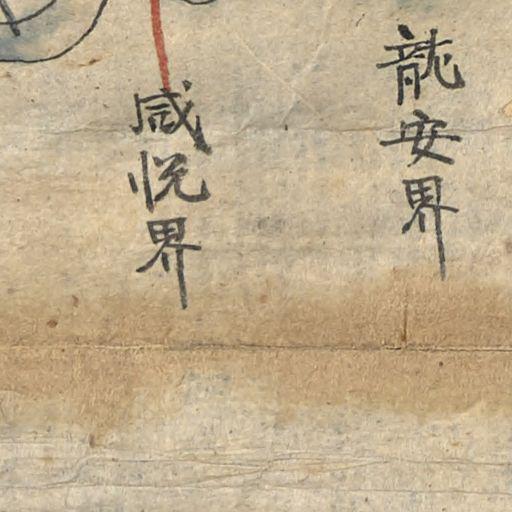 龍安界
咸悦界